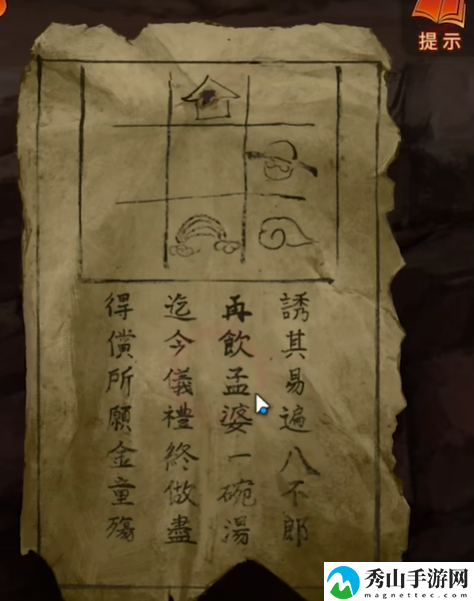 提示
誘其易遍八不郎
再飲孟婆一碗湯
迄今儀禮終做盡
得償所願金童殤
秀山手游网
magnettec.com